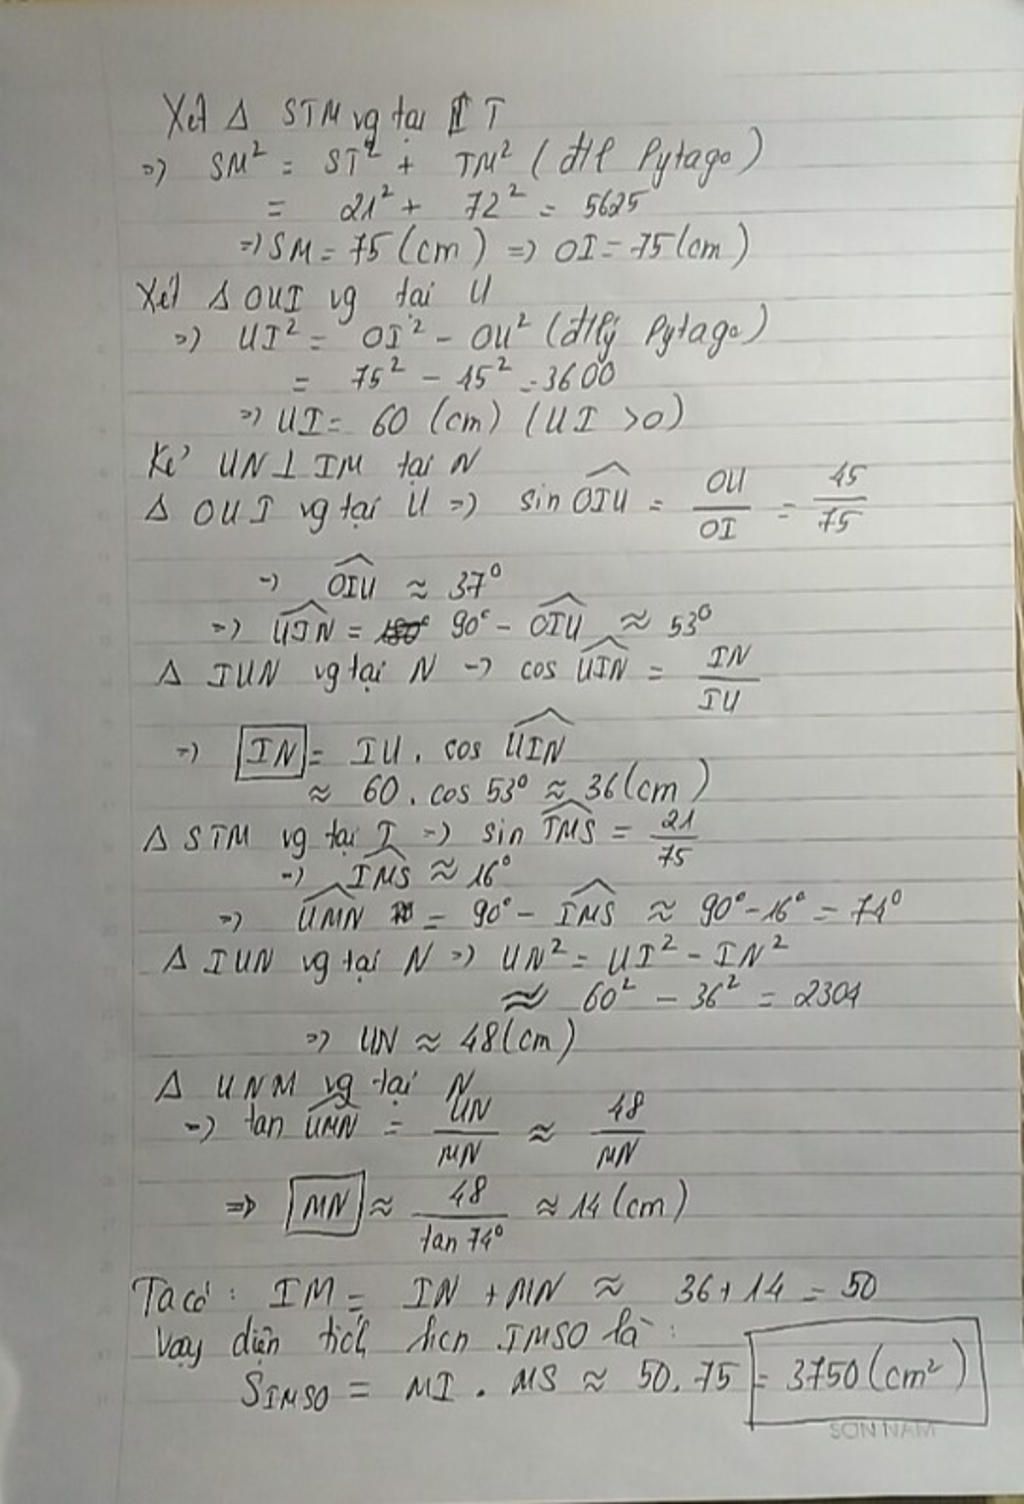 Xét Δ STM vg tại T
=> SM² = ST² + TM² (đlí Pytago)
= 21² + 72² = 5625
=> SM = 75 (cm) => OI = 75 (cm)
Xét Δ OUI vg tại U
=> UI² = OI² - OU² (đlý Pytago)
= 75² - 45² = 3600
=> UI = 60 (cm) (UI > 0)
Kẻ UN ⊥ IM tại N
Δ OUI vg tại U => sin OIU = OU/OI = 45/75
=> OIU ≈ 37°
=> UIN = 90° - OIU ≈ 53°
Δ IUN vg tại N => cos UIN = IN/IU
=> IN = IU . cos UIN
≈ 60 . cos 53° ≈ 36 (cm)
Δ STM vg tại T => sin TMS = 21/75
=> TMS ≈ 16°
=> UMN = 90° - TMS ≈ 90° - 16° = 74°
Δ IUN vg tại N => UN² = UI² - IN²
≈ 60² - 36² = 2304
=> UN ≈ 48 (cm)
Δ UNM vg tại N
=> tan UMN = UN/MN ≈ 48/MN
=> MN ≈ 48/tan 74° ≈ 14 (cm)
Ta có : IM = IN + MN ≈ 36 + 14 = 50
Vậy diện tích hcn IMSO là :
SIMSO = MI . MS ≈ 50 . 75 = 3750 (cm²)
SON NAM